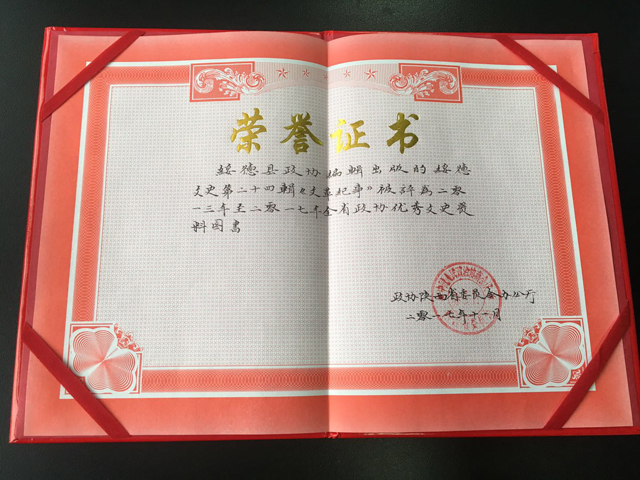 荣誉证书
綏德县政协编輯出版的綏德
文史第二十四輯《文革纪事》被評為二零
一三年至二零一七年全省政协优秀文史資
料图書
政协陕西省委员会办公厅
二零一七年十一月